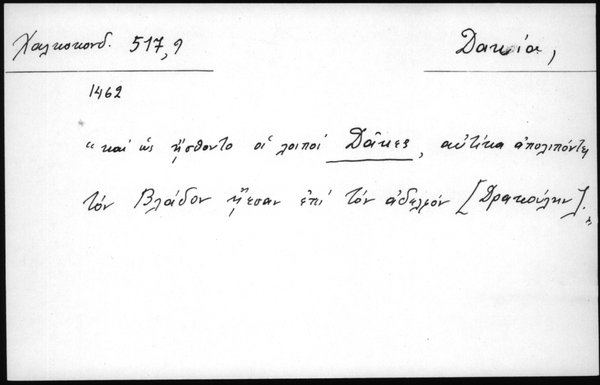 Χαλκοκονδ. 517,9
Δακία,
1462
"καί ὡς ᾔσθοντο οἱ λοιποί Δᾶκες, αὐτίκα ἀπολιπόντες
τόν Βλάδον ᾔεσαν ἐπί τόν ἀδελφόν [Δρακούλην]."